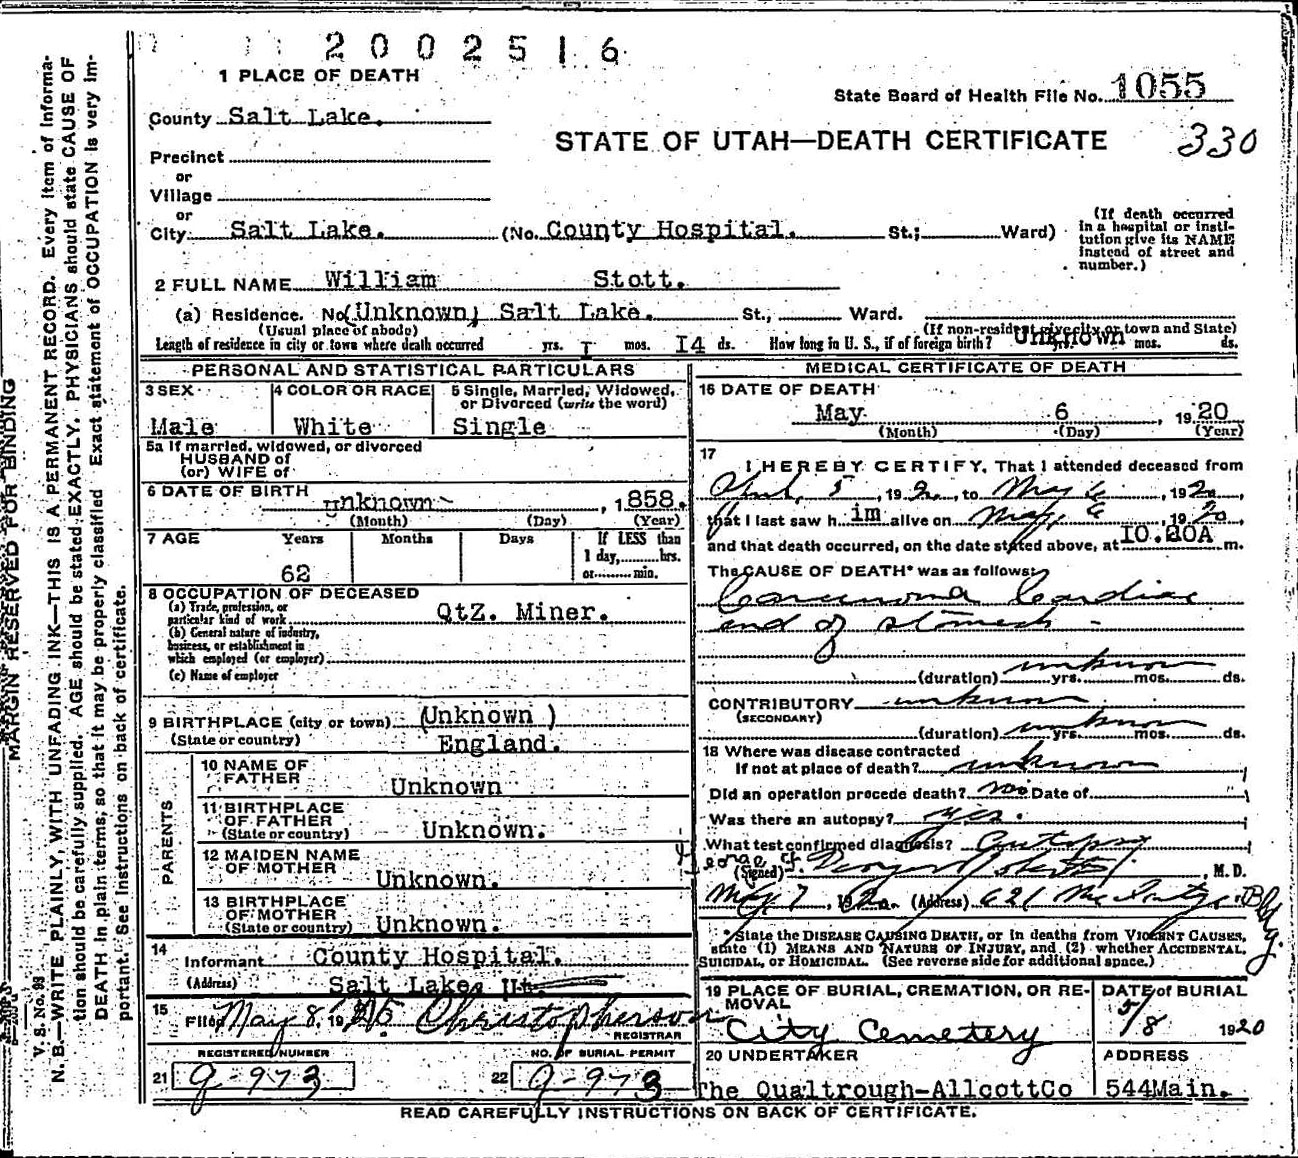 2002516
1 PLACE OF DEATH
State Board of Health File No. 1055
County Salt Lake.
STATE OF UTAH—DEATH CERTIFICATE 330
Precinct
or
Village
or
City Salt Lake. (No. County Hospital. St.; Ward)
(If death occurred
in a hospital or insti-
tution give its NAME
instead of street and
number.)
2 FULL NAME William Stott.
(a) Residence. No. (Unknown) Salt Lake. St., Ward.
(Usual place of abode) (If non-resident give city or town and State)
Length of residence in city or town where death occurred yrs. I mos. I4 ds. How long in U. S., if of foreign birth? Unknown mos. ds.
PERSONAL AND STATISTICAL PARTICULARS
3 SEX
Male
4 COLOR OR RACE
White
5 Single, Married, Widowed,
or Divorced (write the word)
Single
5a If married, widowed, or divorced
HUSBAND of
(or) WIFE of
6 DATE OF BIRTH unknown , 1858.
(Month) (Day) (Year)
7 AGE Years Months Days If LESS than
1 day, hrs.
or min.
62
8 OCCUPATION OF DECEASED
(a) Trade, profession, or
particular kind of work QtZ. Miner.
(b) General nature of industry,
business, or establishment in
which employed (or employer)
(c) Name of employer
9 BIRTHPLACE (city or town) (Unknown )
(State or country) England.
PARENTS
10 NAME OF
FATHER Unknown
11 BIRTHPLACE
OF FATHER
(State or country) Unknown.
12 MAIDEN NAME
OF MOTHER Unknown.
13 BIRTHPLACE
OF MOTHER
(State or country) Unknown.
14
Informant County Hospital.
(Address) Salt Lake, Ut.
15
Filed May 8, 1920 Christopherson
REGISTRAR
REGISTERED NUMBER
21 9-973
NO. OF BURIAL PERMIT
22 9-973
MEDICAL CERTIFICATE OF DEATH
16 DATE OF DEATH
May 6 , 1920
(Month) (Day) (Year)
17
I HEREBY CERTIFY, That I attended deceased from
5 , 192 , to May 6 , 1920,
that I last saw him alive on May 6 , 1920
and that death occurred, on the date stated above, at IO.20A m.
The CAUSE OF DEATH* was as follows:
Carcinoma Cardiac
end of stomach -
(duration) unknown yrs. mos. ds.
CONTRIBUTORY unknown
(SECONDARY)
(duration) unknown yrs. mos. ds.
18 Where was disease contracted
If not at place of death? unknown
Did an operation procede death? no Date of
Was there an autopsy? Yes.
What test confirmed diagnosis? Autopsy
(Signed) George , M. D.
May 7, 1920. (Address) 621 McIntyre Bldg.
*State the DISEASE CAUSING DEATH, or in deaths from VIOLENT CAUSES,
state (1) MEANS AND NATURE OF INJURY, and (2) whether ACCIDENTAL,
SUICIDAL, or HOMICIDAL. (See reverse side for additional space.)
19 PLACE OF BURIAL, CREMATION, OR RE-
MOVAL
City Cemetery
DATE of BURIAL
5/8 1920
20 UNDERTAKER
The Qualtrough-AllcottCo
ADDRESS
544Main.
READ CAREFULLY INSTRUCTIONS ON BACK OF CERTIFICATE.
MARGIN RESERVED FOR BINDING
V. S. No. 98
N. B.—WRITE PLAINLY, WITH UNFADING INK—THIS IS A PERMANENT RECORD. Every item of informa-
tion should be carefully supplied. AGE should be stated EXACTLY. PHYSICIANS should state CAUSE OF
DEATH in plain terms, so that it may be properly classified. Exact statement of OCCUPATION is very im-
portant. See instructions on back of certificate.